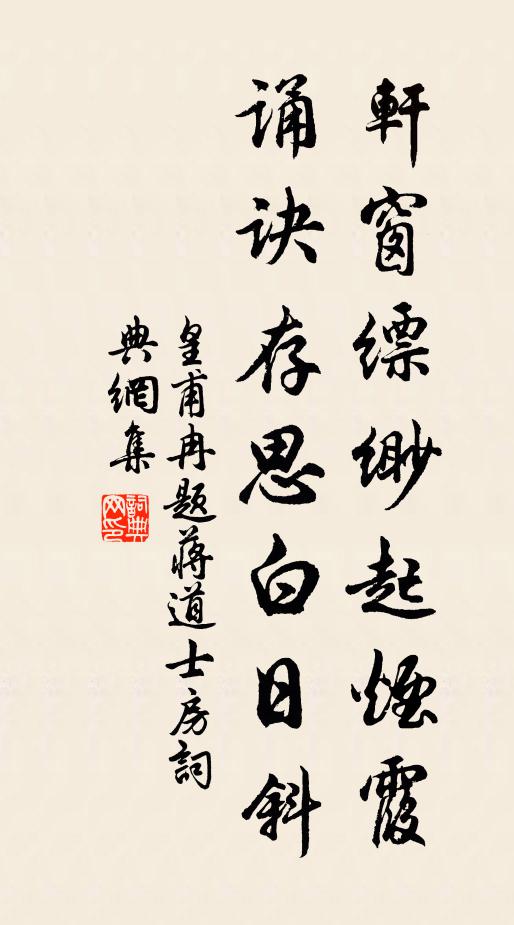 軒窗縹緲起煙霞
誦訣存思白日斜
皇甫冉題蔣道士房詞
典網集
詞典網印